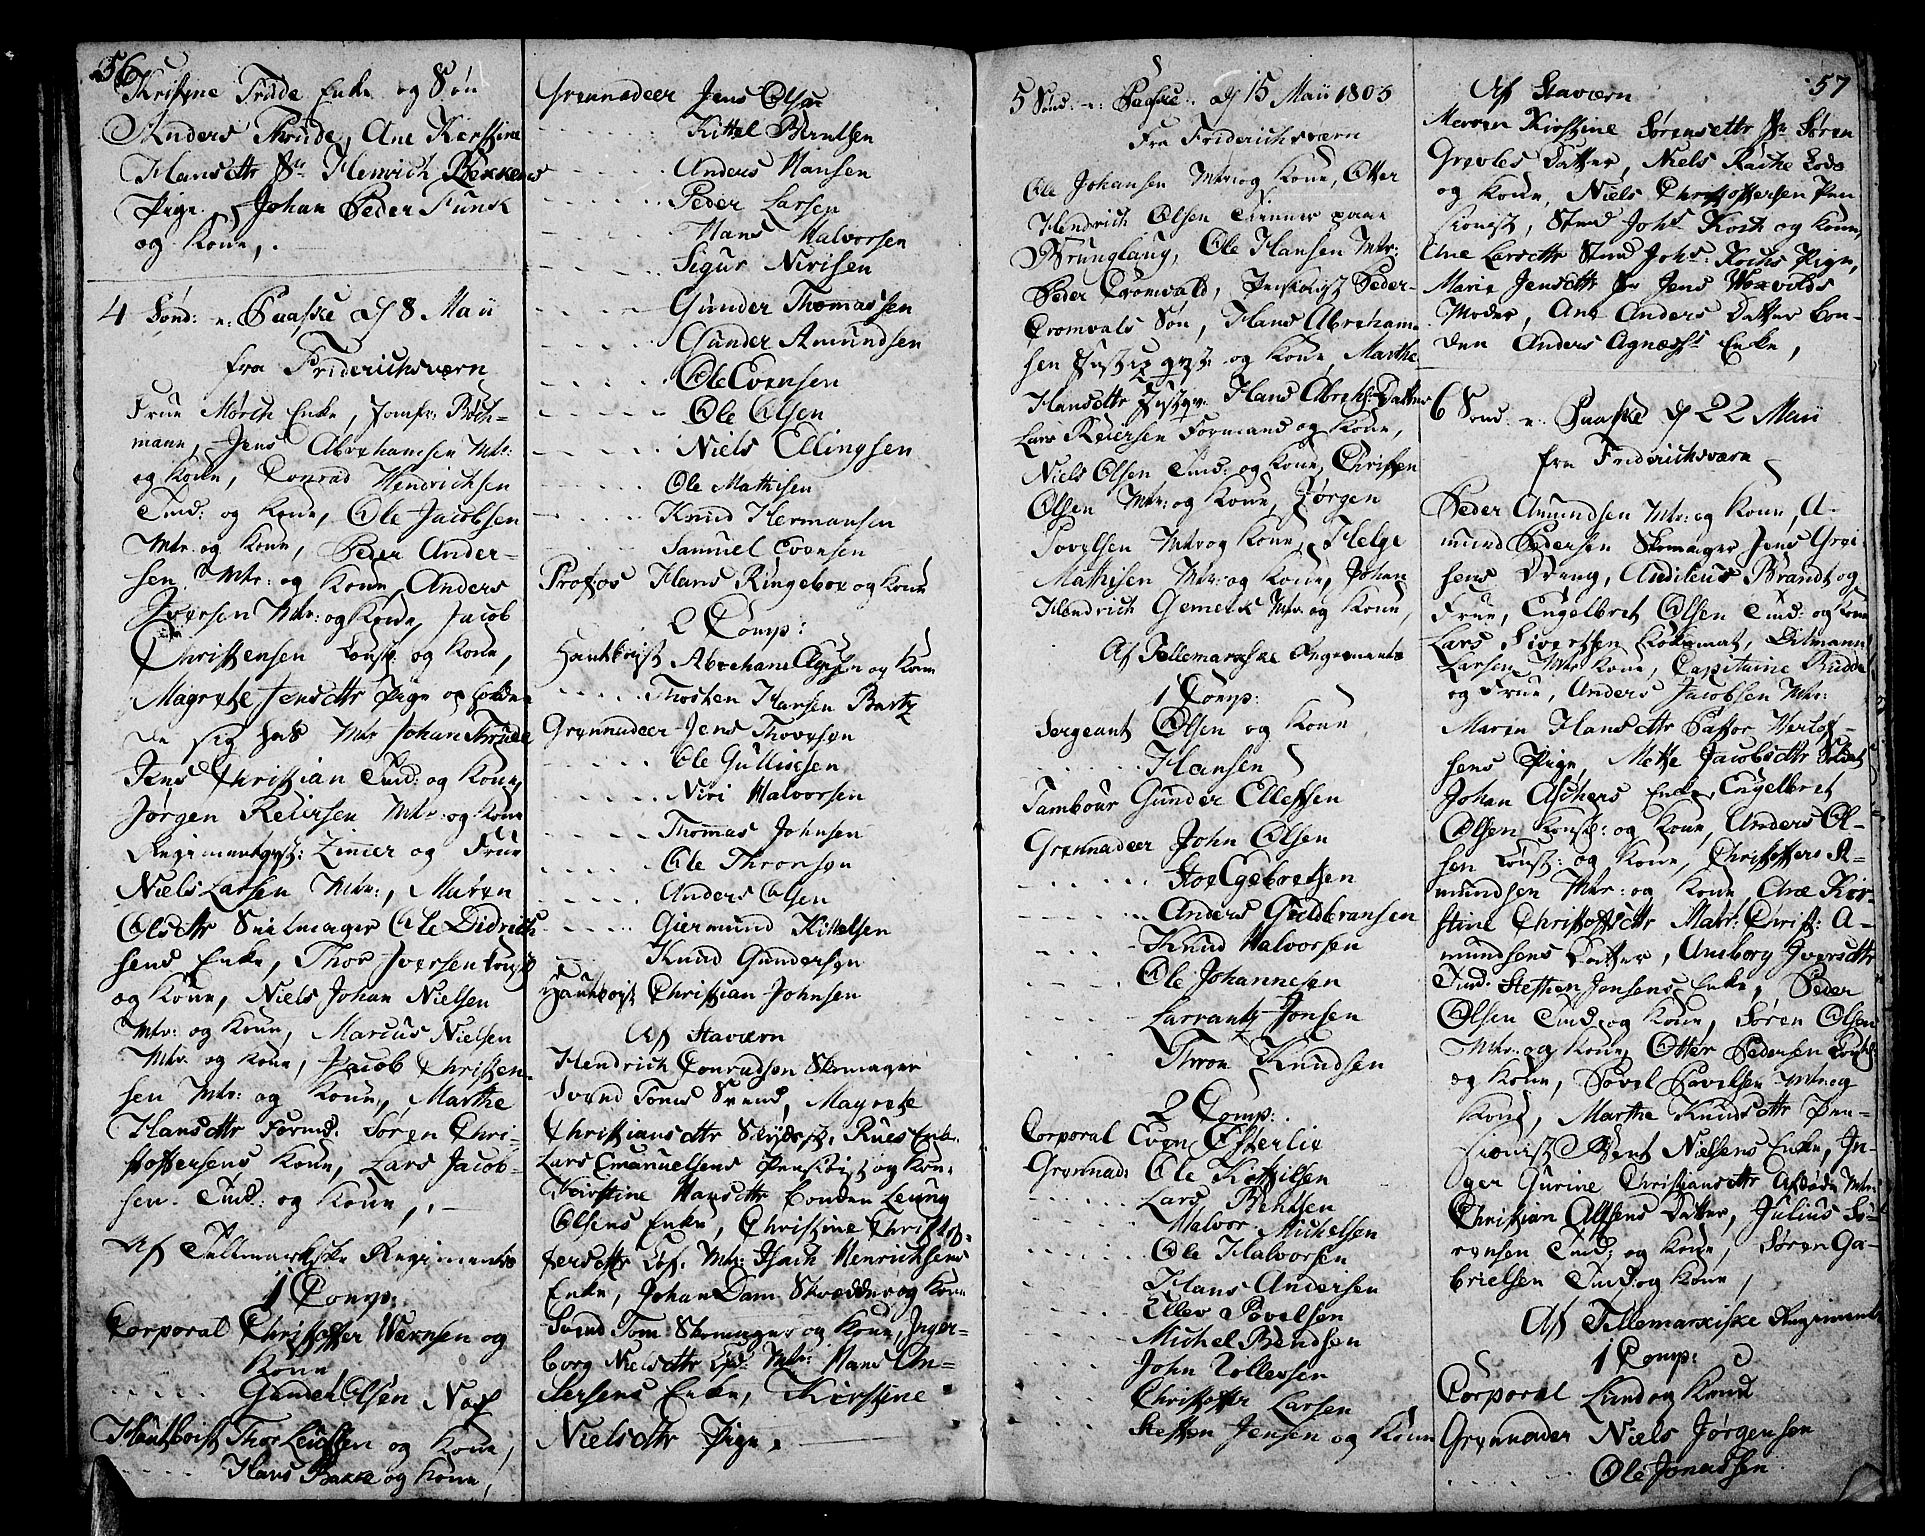 56
Kristine Trude Enke og Søn
Anders Thrude, Ane Kirstine
Hansdttr Sr Henrich Bekkens
Pige, Johan Peder Funk
og Kone,
4 Sønd: e: Paaske d 8 Maii
fra Friderichsværn
Frue Mørch Enke, Jomfr: Boch-
mann, Jens Abrahamsen Mtr:
og Kone, Conrad Hendrichsen
Tmd: og Kone, Ole Jacobsen
Mtr: og Kone, Peder Ander-
sen Mtr: og Kone, Anders
Iversen Mtr: og Kone, Jacob
Christensen Const: og Kone,
Magrete Jensdttr Pige
Mtr Johan Thrude
Jens Christian Tmd: og Kone,
Jørgen Reiersen Mtr: og Kone
Regimentqvst: Zimer og Frue
Niels Larsen Mtr:, Maren
Olsdttr Seilmager Ole Didrich-
sens Enke, Thor Iversen Const
og Kone, Niels Johan Nielsen
Mtr: og Kone, Marcus Nielsen
Mtr. og Kone, Jacob Christen-
sen Mtr: og Kone, Marthe
Hansdttr Formd: Søren Chri-
stoffersens Kone, Lars Jacob-
sen Tmd: og Kone,
Af Tellemarkske Regimente
1 Comp:
Corporal Christoffer Wernsen og
Kone
Gunder Olsen Næs
Hautboist Thor Leufsen og Kone,
Hans Bakke og Kone,
Grennadeer Jens Olsen
Kittel Berntsen
Anders Hansen
Peder Larsen
Hans Halvorsen
Sigur Nirisen
Gunder Thomassen
Gunder Amundsen
Ole Evensen
Ole Olsen
Niels Ellingsen
Ole Mathisen
Knud Hermansen
Samuel Evensen
Profos Hans Ringeboe og Kone
2 Comp:
Hautboist Abraham og Kone
Thosten Hansen Bart
Grennadeer Jens Thovesen
Ole Gullisen
Niri Halvorsen
Thomas Johnsen
Ole Thronsen
Anders Olsen
Giermund Kittelsen
Knud Gundersen
Hautboist Christian Johnsen
Af Staværn
Hendrich Conradsen Skomager
Svend Toms Svend, Magrete
Christiansdttr Rues Enke,
Lars Emanuelsens og Kone,
Kirstine Hansdttr Bonden Leung
Olsens Enke, Christine Christof-
fersdttr Mtr: Isach Henrichsens
Enke, Johan Dam Skredder og Kone
Svend Tom Skomager og Kone, Inger-
borg Nielsdttr Mtr: Hans An-
dersens Enke, Kirstine
Nielsdttr Pige,
5 Sønd: e: Paaske d 15 Maii 1803
Fra Friderichsværn
Ole Johansen Mtr: og Kone, Otter
Hendrich Olsen Tømmer
Brunglang, Ole Hansen Mtr:
Peder Cromvald, Peder
Cromvals Søn, Hans Abraham-
sen og Kone, Marthe
Hansdttr Hans Abrah: Datter
Lars Reiersen Formand og Kone,
Niels Olsen Tmd: og Kone, Christen
Olsen Mtr: og Kone, Jørgen
Povelsen Mtr og Kone, Helge
Mathisen Mtr: og Kone, Johan
Hendrich Gemelk Mtr: og Kone,
Af Tellemarkske Regimente
1 Comp:
Sergeant Olsen og Kone
Hansen
Tambour Gunder Ellefsen
Grennadeer John Olsen
Stoe Egebretsen
Anders Guldbransen
Knud Halvorsen
Ole Johannesen
Larrantz Jonsen
Thron Knudsen
2 Comp:
Corporal Even Østerlie
Grennad: Ole Kittilsen
Lars Bentsen
Halvor Michelsen
Ole Halvorsen
Hans Andersen
Ellev Povelsen
Michel Bendsen
John Tollevsen
Christoffer Larsen
Steffen Jensen og Kone
57
Af Staværn
Maren Kirstine Sørensdttr Sr Søren
Greules Datter, Niels Rache Lods
og Kone, Niels Christoffersen Pen
sionist, Stmd Johs Koch og Kone,
Ane Larsdttr Stmd Johs: Kochs Pige,
Marie Jensdttr Sr Jens Woxvolds
Moder, Ane Anders Datter Bon-
den Anders Agness Enke,
6 Sønd: e: Paaske d 22 Maii
fra Friderichsværn
Peder Amundsen Mtr: og Kone, A-
mund Pedersen Skomager Jens Grei-
sens Dreng, Auditeus Brandt og
Frue, Engelbret Olsen Tmd: og Kone
Lars Sivertsen Ditmann
Larsen Mtr Kone, Capitaine Budde
og Frue, Anders Jacobsen Mtr:
Maren Hansdttr Pastor Herlof-
sens Pige, Mette Jacobsdttr Soldat
Johan Aschens Enke, Engelbret
Olsen Const: og Kone, Anders Ol-
sen Const: og Kone, Christoffer A-
mundsen Mtr: og Kone Ane Kir-
stine Christoffsdttr Matr: Christ: A-
mundsens Datter, Ansborg Iversdttr
Tmd. Steffen Jensens Enke, Peder
Olsen Tmd og Kone, Søren Olsen
Mtr: og Kone, Otter Pedersen Const
og Kone, Povel Povelsen Mtr: og
Kone, Marthe Knudsdttr Pen-
sionist Bent Nielsens Enke, In-
ger Gurine Christiansdttr Afdøde Mtr
Christian Olsens Datter, Julius Sø-
rensen Tmd: og Kone, Søren Ga-
brielsen Tmd: og Kone,
Af Tellemarkiske Regimente
1 Comp:
Corporal Lund og Kone
Grennadeer Niels Jørgensen
Ole Jonassen